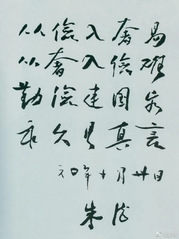 从俭入奢易
从奢入俭难
勤俭建国家
永久是真言
年十月廿日
朱德